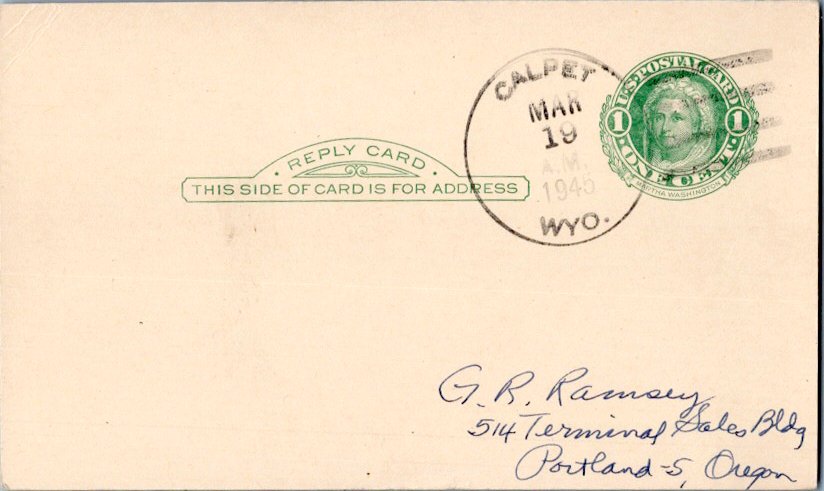 CALPET
MAR
19
A.M.
1945
WYO.
U.S. POSTAL CARD
1 1
ONE CENT
MARTHA WASHINGTON
· REPLY CARD ·
THIS SIDE OF CARD IS FOR ADDRESS
G. R. Ramsey
514 Terminal Sales Bldg
Portland-5, Oregon